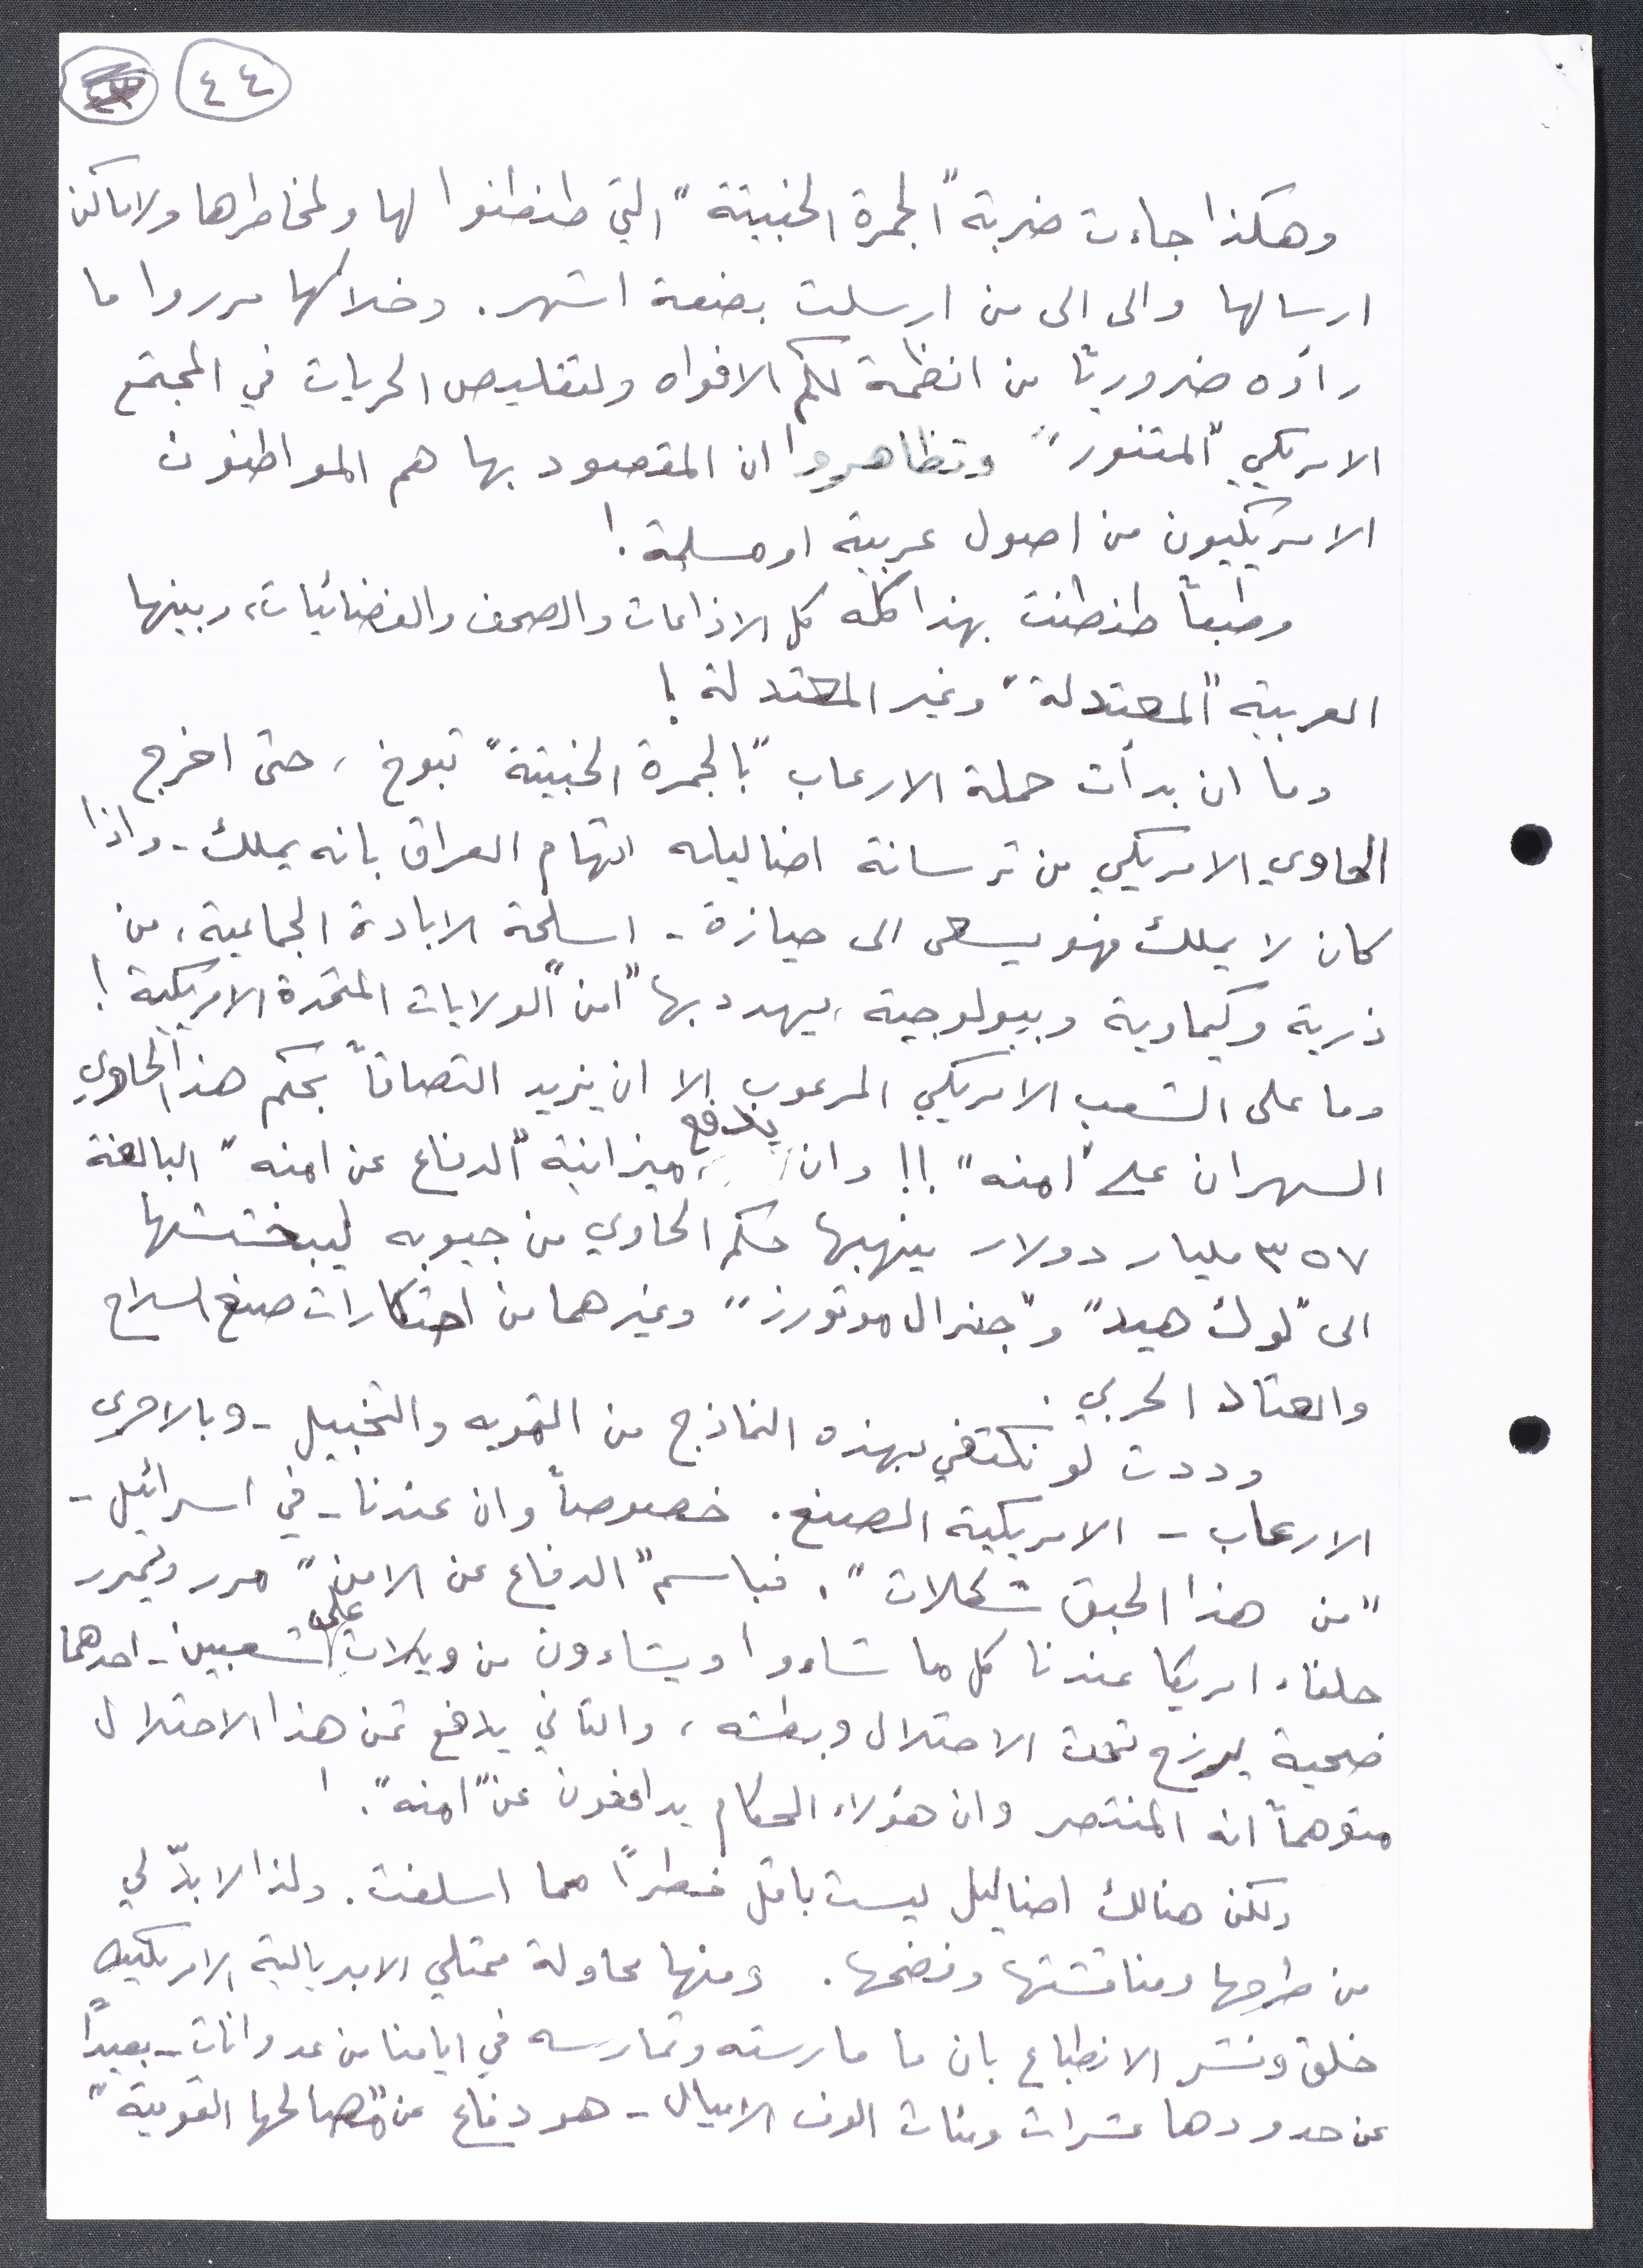 ٤٤
وهكذا جاءت ضربة "الجمرة الخبيثة" التي طنطنوا لها ولمخاطرها ولاماكن
ارسالها والى الى من ارسلت بضعة اشهر. وخلالها مرروا ما
رأوه ضروريًا من انظمة لكم الافواه ولتقليص الحريات في المجتمع
الامريكي "المتنور" وتظاهروا ان المقصود بها هم المواطنون
الامريكيون من اصول عربية او مسلمة!
وطبعاً طنطنت بهذا كله كل الاذاعات والصحف والفضائيات، وبينها
العربية "المعتدلة" وغير المعتدلة!
وما ان بدأت حملة الارعاب "بالجمرة الخبيثة" تبوخ، حتى اخرج
الحاوي الامريكي من ترسانة اضاليله اتهام العراق بانه يملك - واذا
كان لا يملك فهو يسعى الى حيازة - اسلحة الابادة الجماعية، من
ذرية وكيماوية وبيولوجية، يهدد بها "امن" الولايات المتحدة الامريكية!
وما على الشعب الامريكي المرعوب الا ان يزيد التصاقاً بحكم هذا الحاوي
السهران على "امنه"!! وان يدفع ميزانية "الدفاع عن امنه" البالغة
٣٥٧ مليار دولار ينهبها حكم الحاوي من جيوبه ليبخششها
الى "لوك هيد" و"جنرال موتورز" وغيرهما من احتكارات صنع السلاح
والعتاد الحربي.
وددت لو نكتفي بهذه النماذج من التمويه والتخبيل - وبالاحرى
الارعاب - الامريكية الصنع. خصوصاً وان عندنا - في اسرائيل -
"من هذا الحبق شكلات". فباسم "الدفاع عن الامن" مرر ويمرر
حلفاء امريكا عندنا كل ما شاءوا ويشاءون من ويلات على شعبين - احدهما
ضحية يرزح تحت الاحتلال وبطشه، والثاني يدفع ثمن هذا الاحتلال
متوهماً انه المنتصر وان هؤلاء الحكام يدافعون عن "امنه"!
ولكن هنالك اضاليل ليست باقل خطراً مما اسلفت. ولذا لا بدّ لي
من طرحها ومناقشتها وفضحها. ومنها محاولة ممثلي الامبريالية الامريكية
خلق ونشر الانطباع بان ما مارسته وتمارسه في ايامنا من عدوانات - بعيداً
عن حدودها عشرات ومئات الوف الاميال - هو دفاع عن "مصالحها القومية"